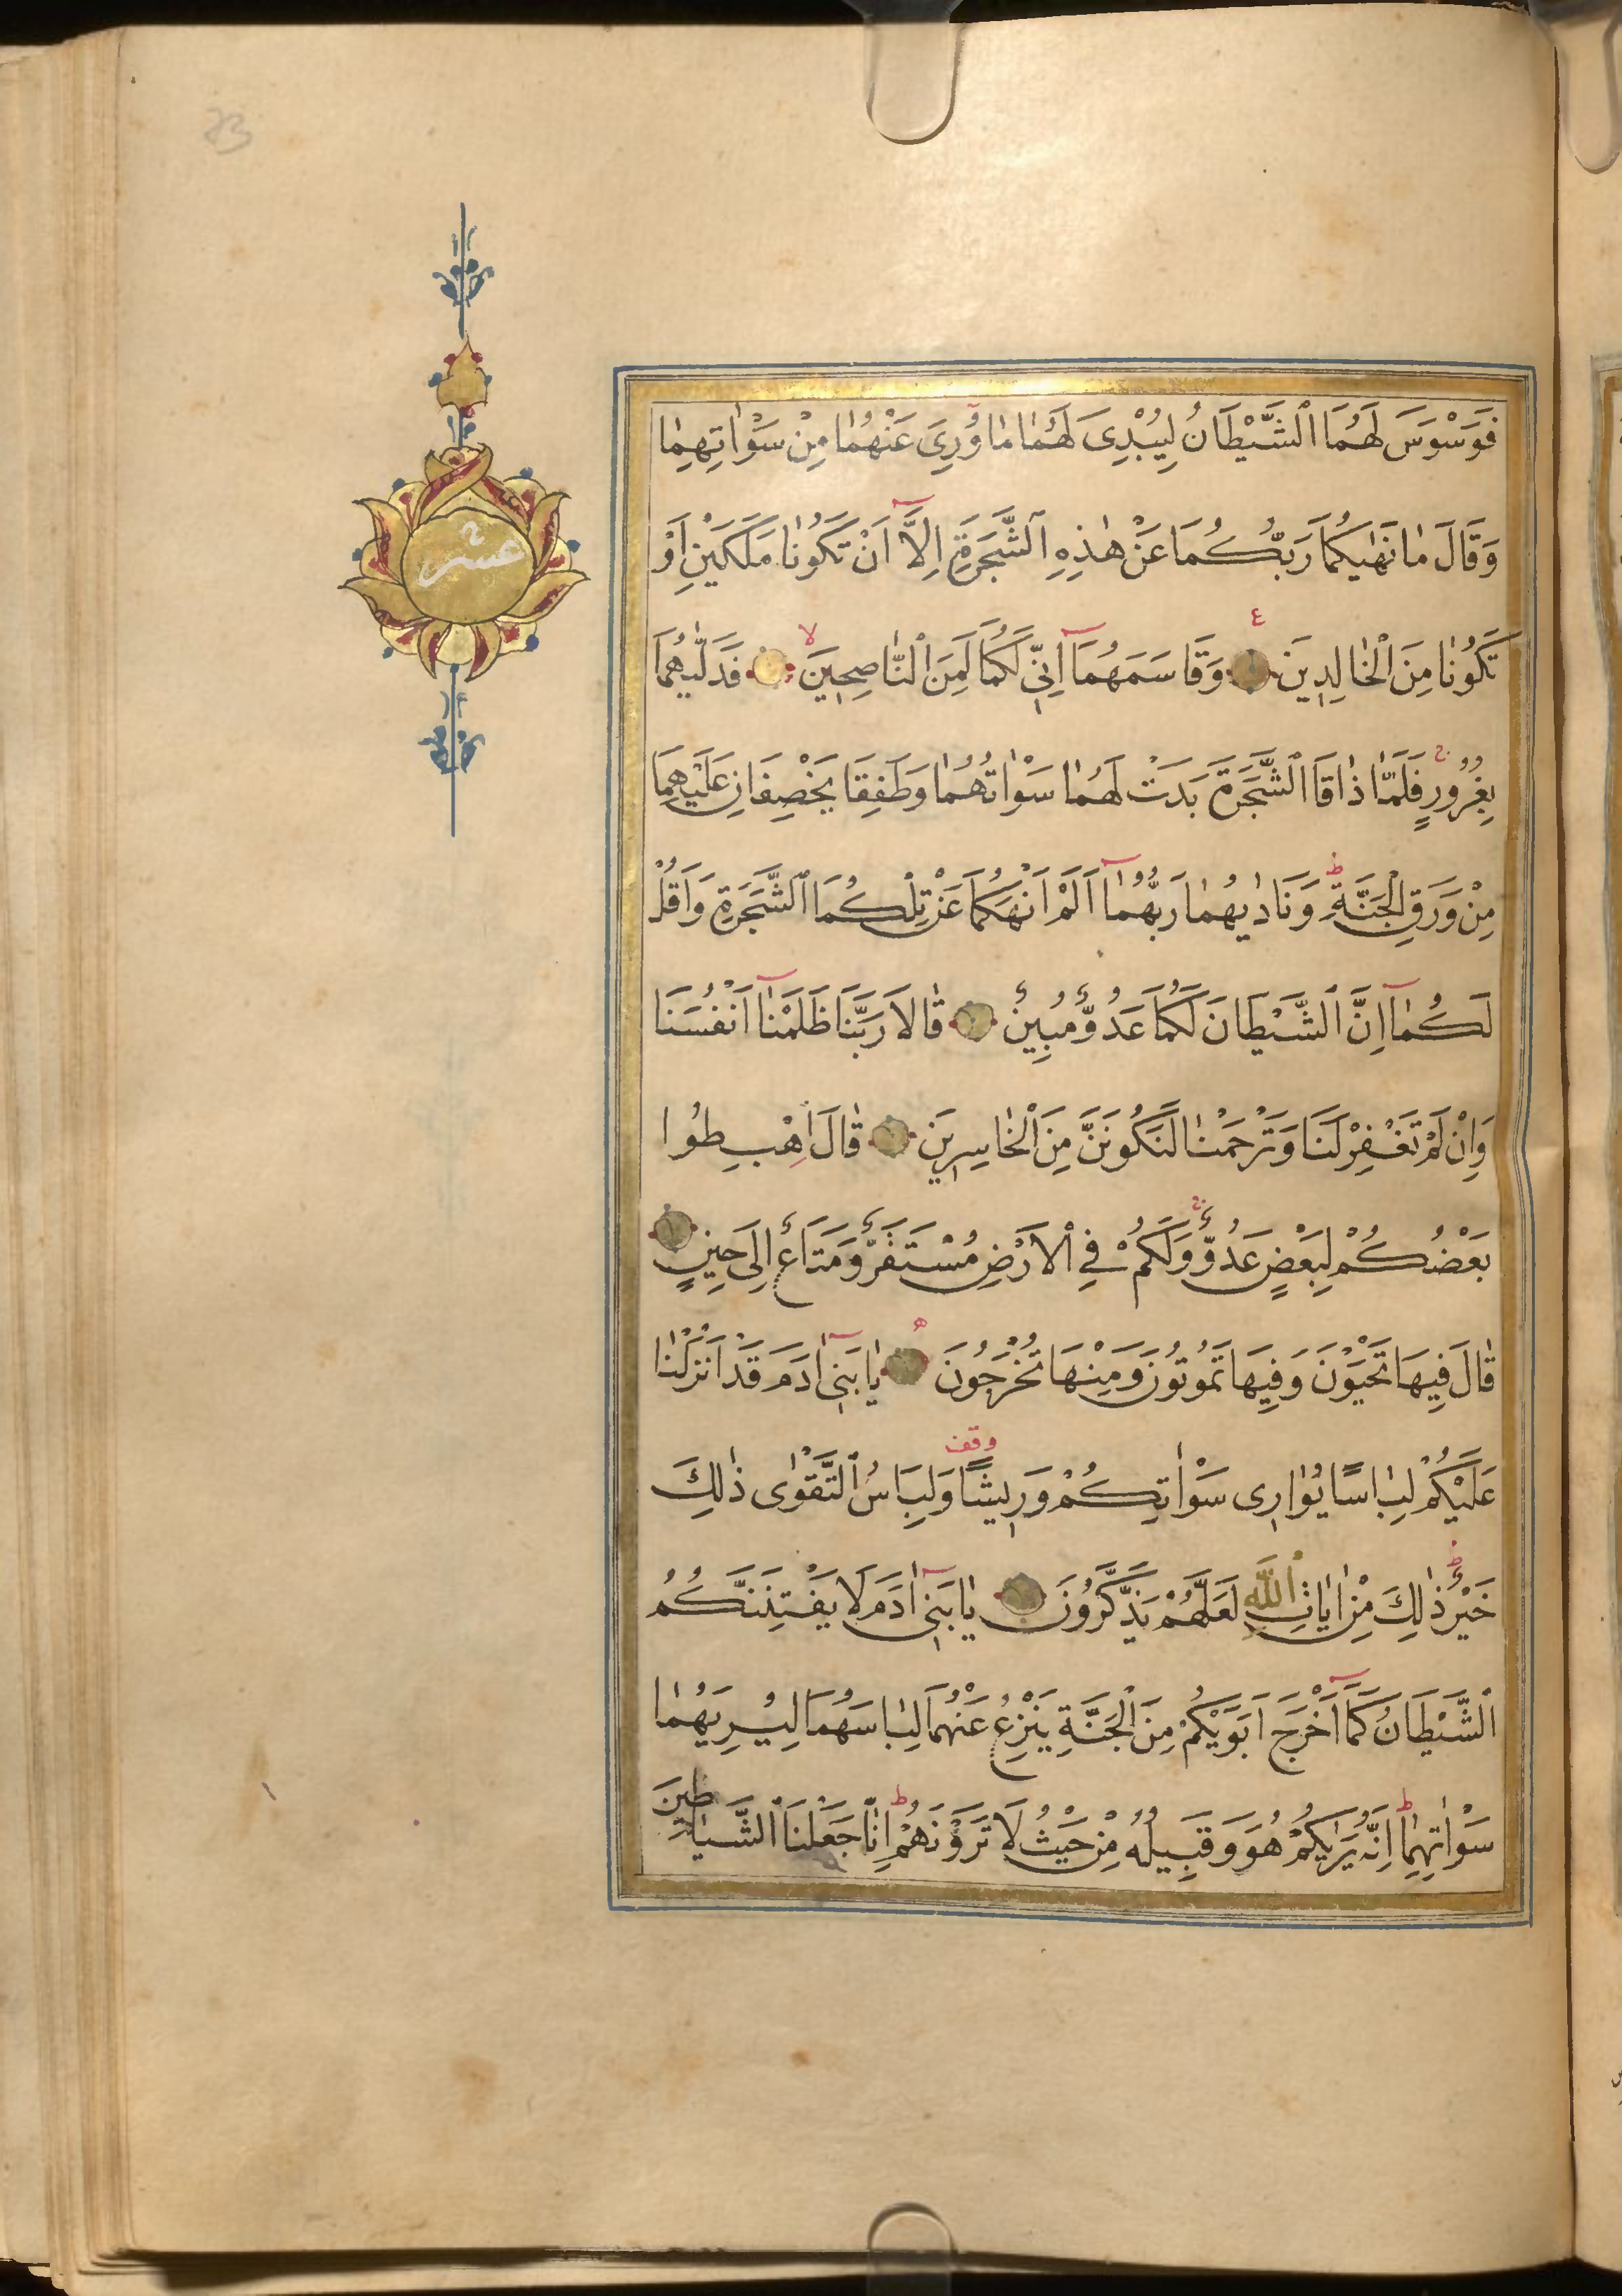 فَوَسْوَسَ لَهُمَا ٱلشَّيْطَانُ لِيُبْدِىَ لَهُمٰا مٰا وُرِىَ عَنْهُمٰا مِنْ سَوْاٰتِهِمٰا
وَقَالَ مٰا نَهٰيكُمَا رَبُّكُمَا عَنْ هٰذِهِ ٱلشَّجَرَةِ اِلَّٓا اَنْ تَكُونٰا مَلَكَيْنِ اَوْ
تَكُونٰا مِنَ ٱلْخٰالِدِينَ ع وَقَاسَمَهُمَٓا اِنِّى لَكُمَا لَمِنَ ٱلنّٰاصِحِينَ لا فَدَلّٰيهُمَا
بِغُرُورٍ ج فَلَمّٰا ذٰاقَا ٱلشَّجَرَةَ بَدَتْ لَهُمٰا سَوْاٰتُهُمٰا وَطَفِقَا يَخْصِفَانِ عَلَيْهِمَا
مِنْ وَرَقِ ٱلْجَنَّةِ ط وَنَادٰيهُمٰا رَبُّهُمٰٓا اَلَمْ اَنْهَكُمَا عَنْ تِلْكُمَا ٱلشَّجَرَةِ وَاَقُلْ
لَكُمٰٓا اِنَّ ٱلشَّيْطَانَ لَكُمَا عَدُوٌّ مُبِينٌ قٰالَا رَبَّنَا ظَلَمْنٰٓا اَنْفُسَنَا
وَاِنْ لَمْ تَغْفِرْ لَنَا وَتَرْحَمْنٰا لَنَكُونَنَّ مِنَ ٱلْخٰاسِرِينَ قٰالَ اهْبِطُوا
بَعْضُكُمْ لِبَعْضٍ عَدُوٌّ ج وَلَكُمْ فِى ٱلْاَرْضِ مُسْتَقَرٌّ وَمَتَاعٌ اِلَى حِينٍ
قٰالَ فِيهَا تَحْيَوْنَ وَفِيهَا تَمُوتُونَ وَمِنْهَا تُخْرَجُونَ ه يٰا بَنِىٓ اٰدَمَ قَدْ اَنْزَلْنٰا
عَلَيْكُمْ لِبٰاسًا يُوٰارِى سَوْاٰتِكُمْ وَرِيشًا وقف وَلِبَاسُ ٱلتَّقْوٰى ذٰلِكَ
خَيْرٌ ط ذٰلِكَ مِنْ اٰيٰاتِ ٱللّٰهِ لَعَلَّهُمْ يَذَّكَّرُونَ يٰا بَنِىٓ اٰدَمَ لَا يَفْتِنَنَّكُمُ
ٱلشَّيْطَانُ كَمَٓا اَخْرَجَ اَبَوَيْكُمْ مِنَ ٱلْجَنَّةِ يَنْزِعُ عَنْهُمَا لِبٰاسَهُمَا لِيُرِيَهُمٰا
سَوْاٰتِهِمٰا ط اِنَّهُ يَرٰيكُمْ هُوَ وَقَبِيلُهُ مِنْ حَيْثُ لَا تَرَوْنَهُمْ ط اِنّٰا جَعَلْنَا ٱلشَّيٰاطِينَ
عشر
23